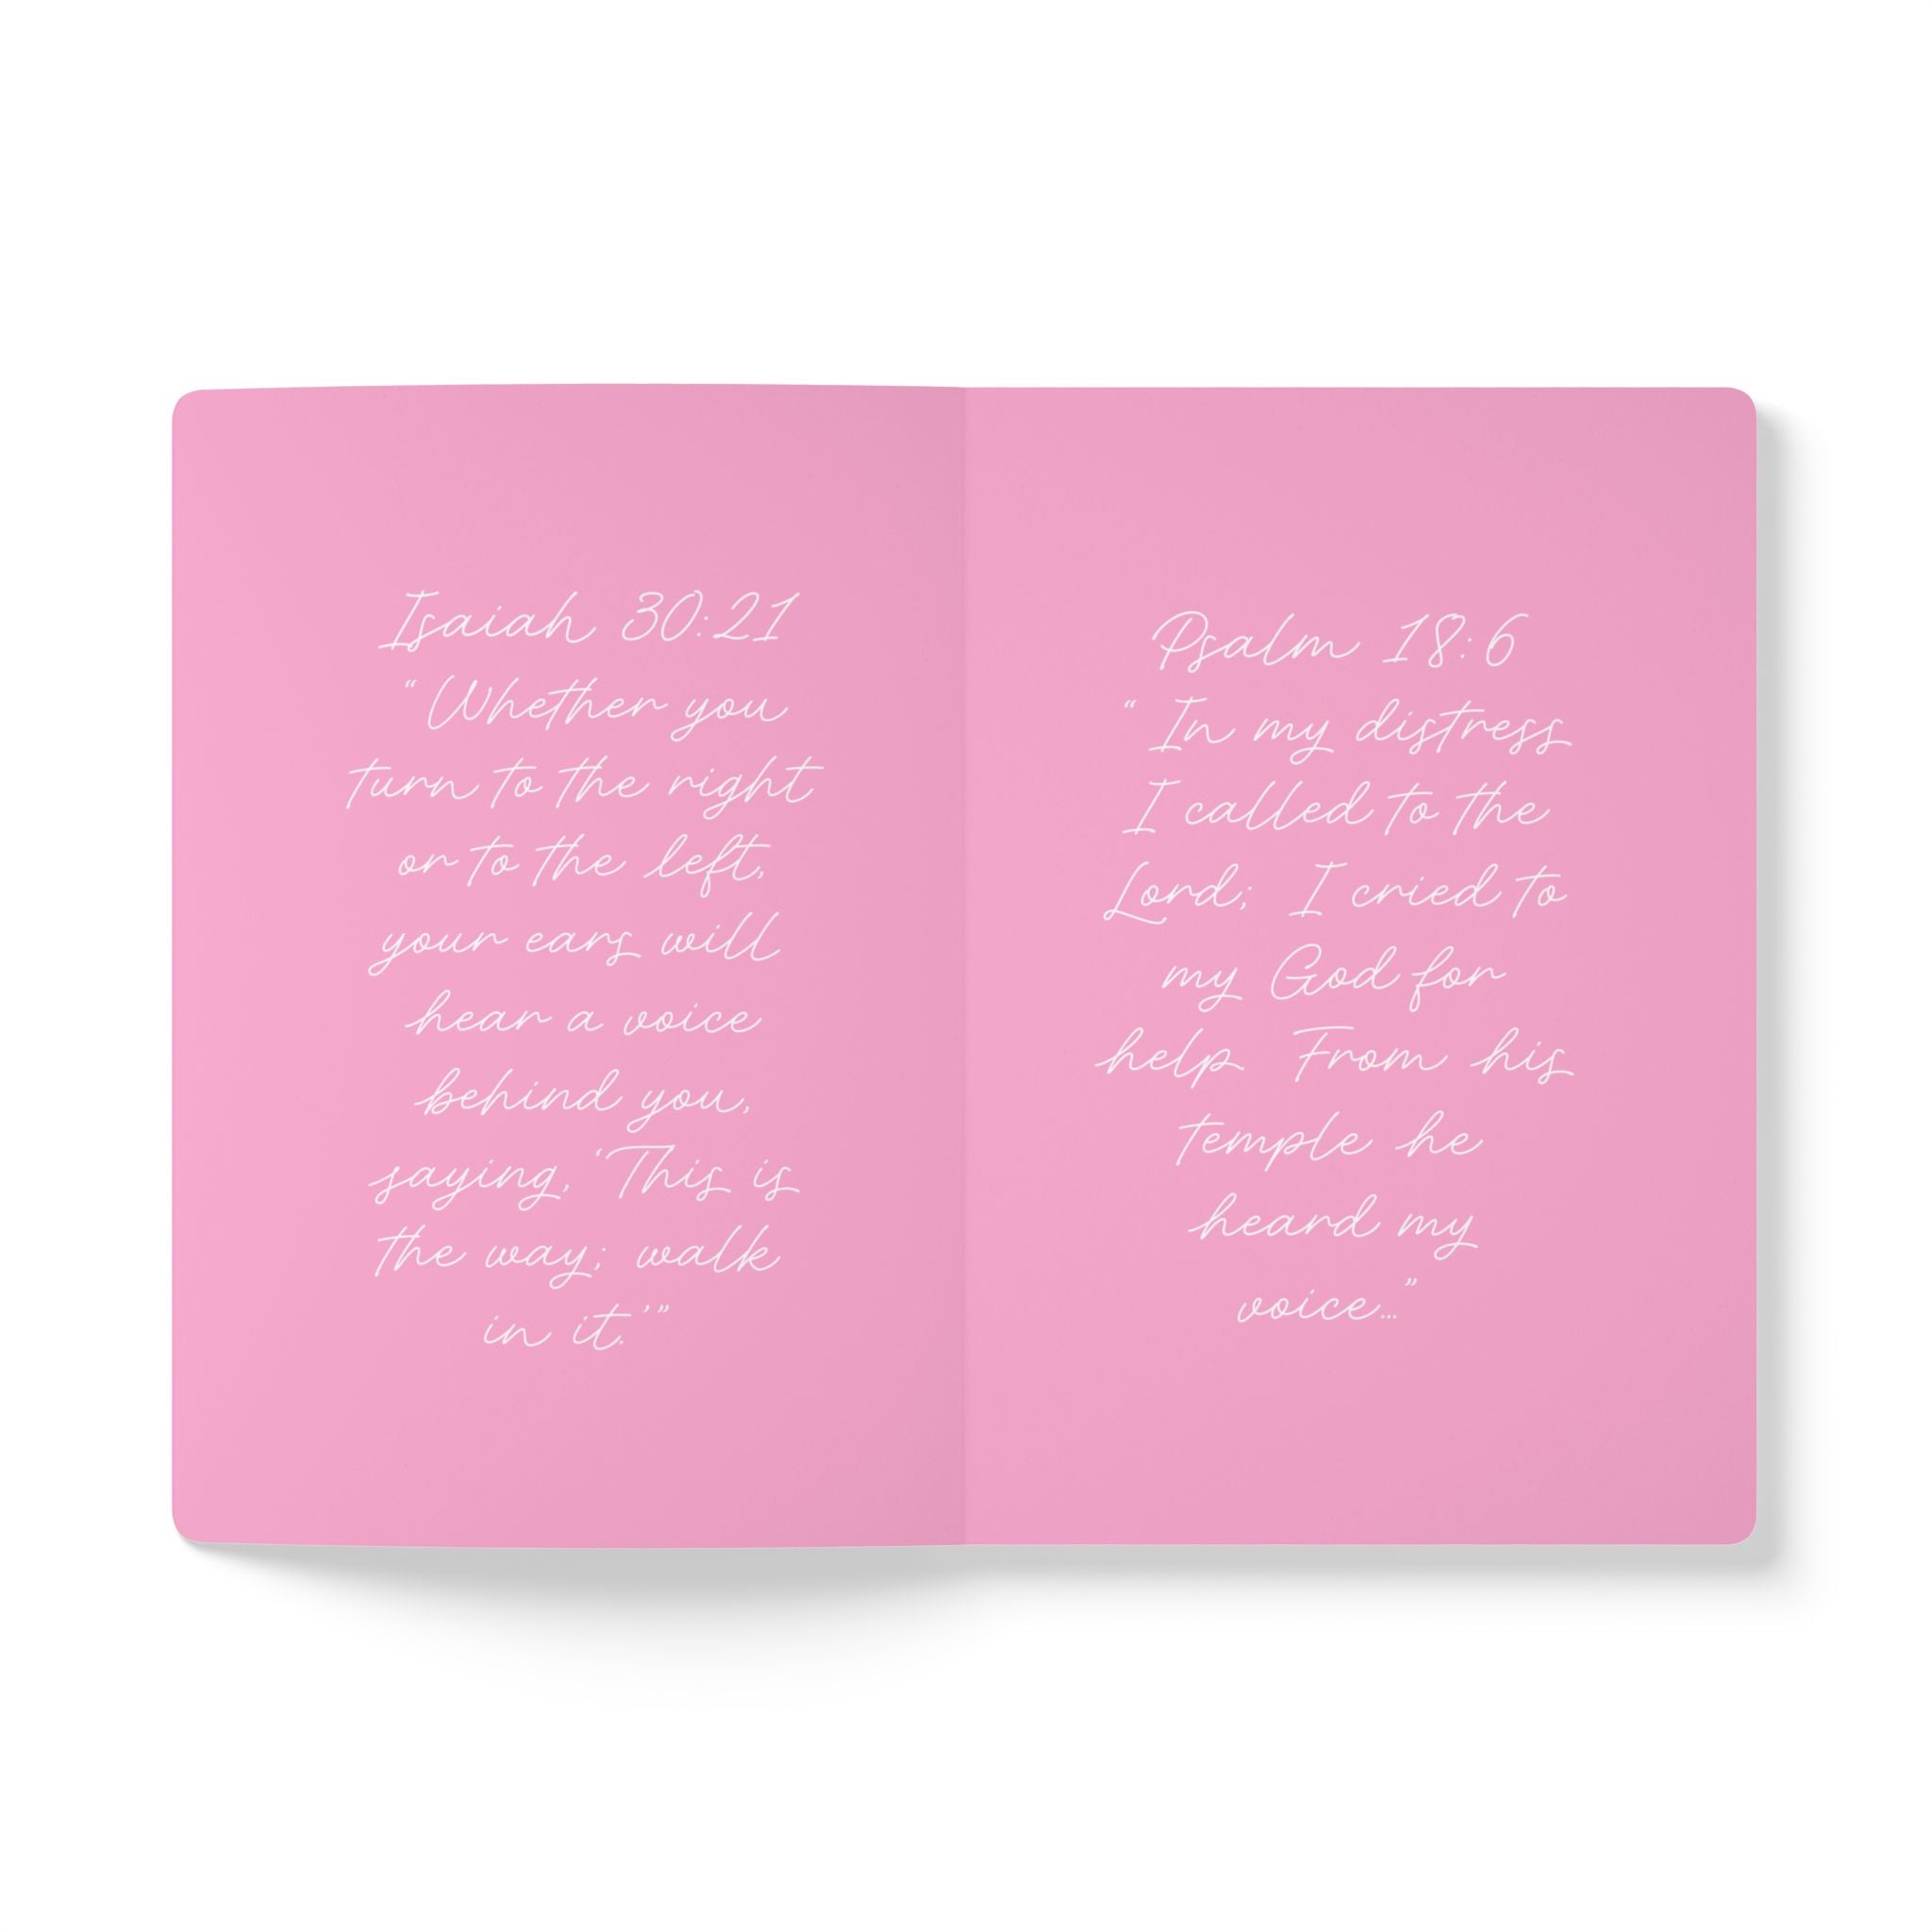 Isaiah 30:21
“Whether you
turn to the right
or to the left,
your ears will
hear a voice
behind you,
saying, ‘This is
the way; walk
in it.’”
Psalm 18:6
“In my distress
I called to the
Lord; I cried to
my God for
help. From his
temple he
heard my
voice...”